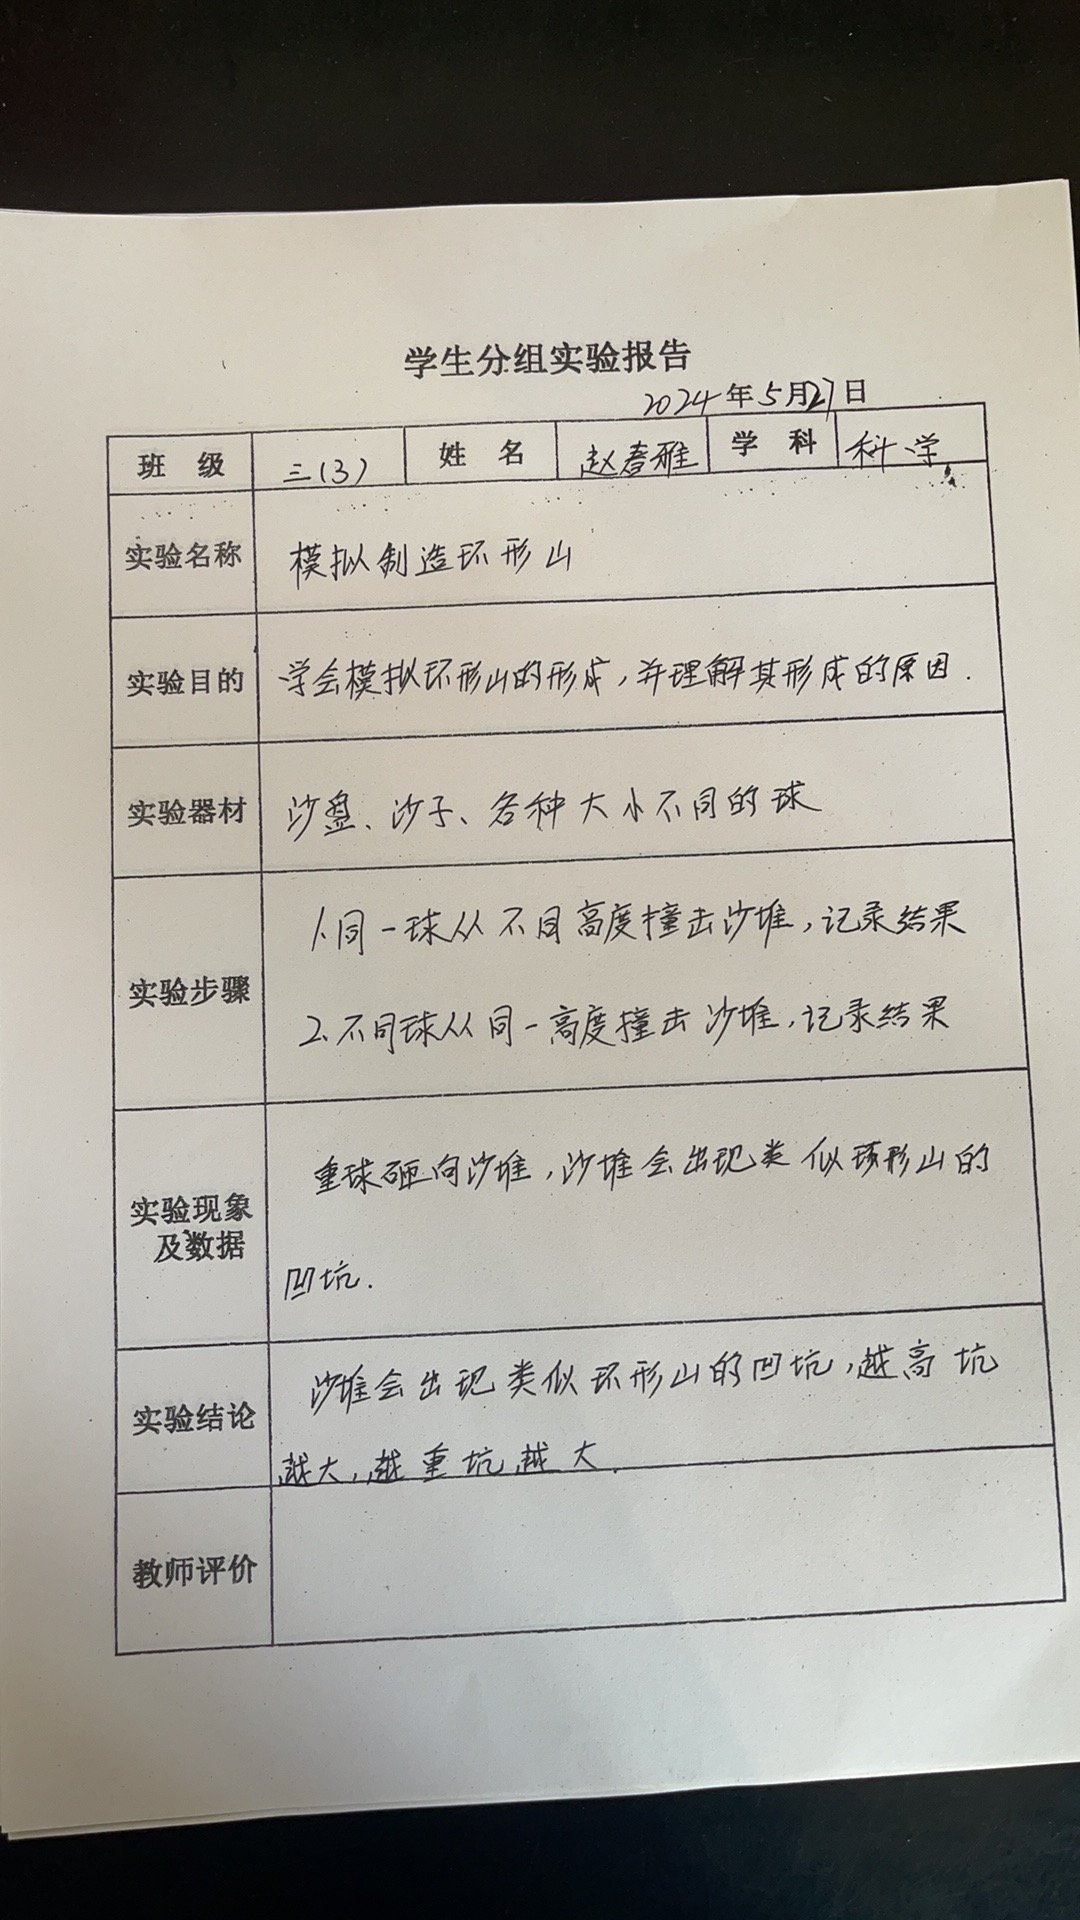 学生分组实验报告
2024年5月27日
班 级 三(3) 姓 名 赵春雅 学 科 科学
实验名称 模拟制造环形山
实验目的 学会模拟环形山的形成,并理解其形成的原因.
实验器材 沙盘、沙子、各种大小不同的球
实验步骤
1.同一球从不同高度撞击沙堆,记录结果
2.不同球从同一高度撞击沙堆,记录结果
实验现象
及数据
重球砸向沙堆,沙堆会出现类似环形山的
凹坑.
实验结论
沙堆会出现类似环形山的凹坑,越高坑
越大,越重坑越大.
教师评价